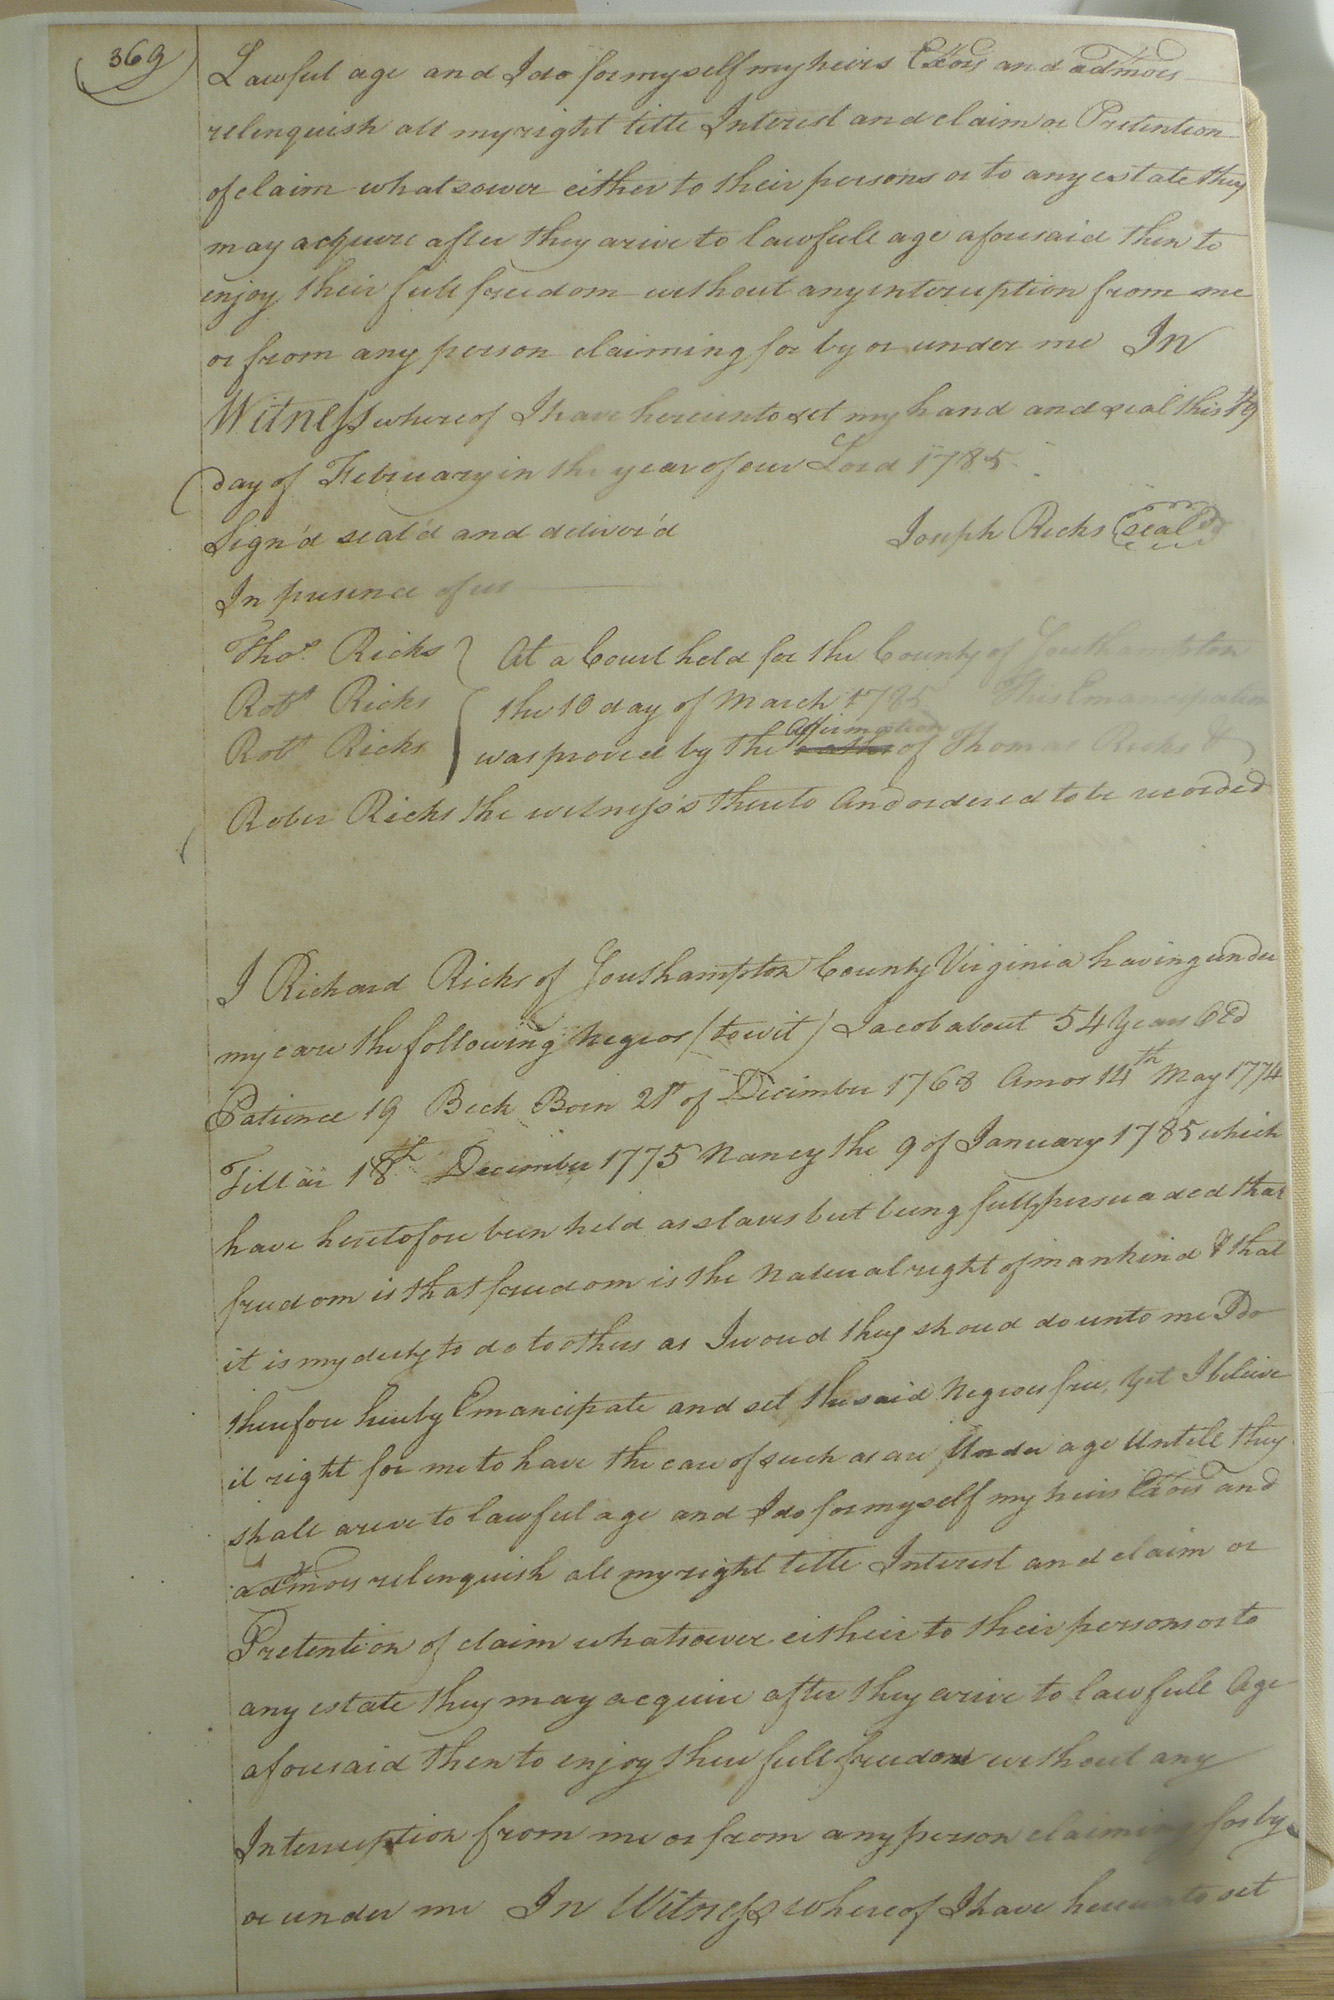 369
Lawful age and I do for my self my heirs Exors and admors
relinquish all my right title Interest and claim or Pretention
of claim whatsower either to their persons or to any estate they
may acquire after they arive to lawfull age aforesaid then to
enjoy their full freedom without any interuption from me
or from any person claiming for by or under me In
Witness where of I have hereunto set my hand and seal this
day of February in the year of our Lord 1785
Sign'd seal'd and deliver'd Joseph Ricks seal
In presence of us
Thos. Ricks At a Court held for the County of Southampton
Robt Ricks the 10 day of March 1785 This Emancipation
Robt Ricks was proved by the affirmation of Thomas Ricks &
Rober Ricks the witness's thereto And ordered to be recorded
I Richard Ricks of Southampton County Virginia having under
my care the following Negros (towit) Jacob about 54 Years Old
Patience 19 Beck Born 21st of December 1768 Amos 14th May 1774
Tillar 18th December 1775 Nancy the 9 of January 1785 which
have heretofore been held as slaves but being fully persuaded that
freedom is that freedom is the Natural right of mankind & that
it is my duty to do to others as I woud they shoud do unto me I do
therefore hereby Emancipate and set the said Negroes free, Yet I beleive
it right for me to have the care of such as are Under age Untill they
shall arive to lawful age and I do for my self my heirs Exors and
admors relinquish all my right title Interest and claim or
Pretention of claim whatsoever either to their persons or to
any estate they may acquire after they arive to lawfull Age
aforesaid then to enjoy their full freedom without any
Interruption from me or from any person claiming for by
or under me In Witness whereof I have hereunto set